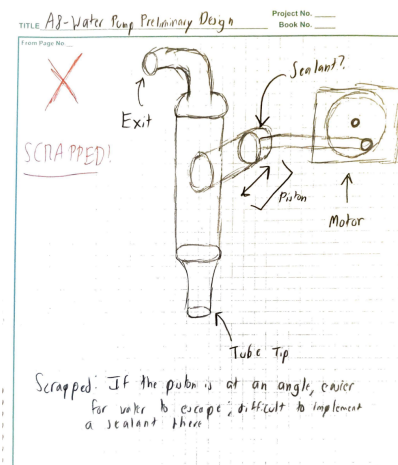 TITLE A8-Water Pump Preliminary Design
Project No.
Book No.
From Page No.
SCRAPPED!
Exit
Sealant?
Piston
Motor
Tube Tip
Scrapped: If the piston is at an angle, easier
for water to escape; difficult to implement
a sealant there